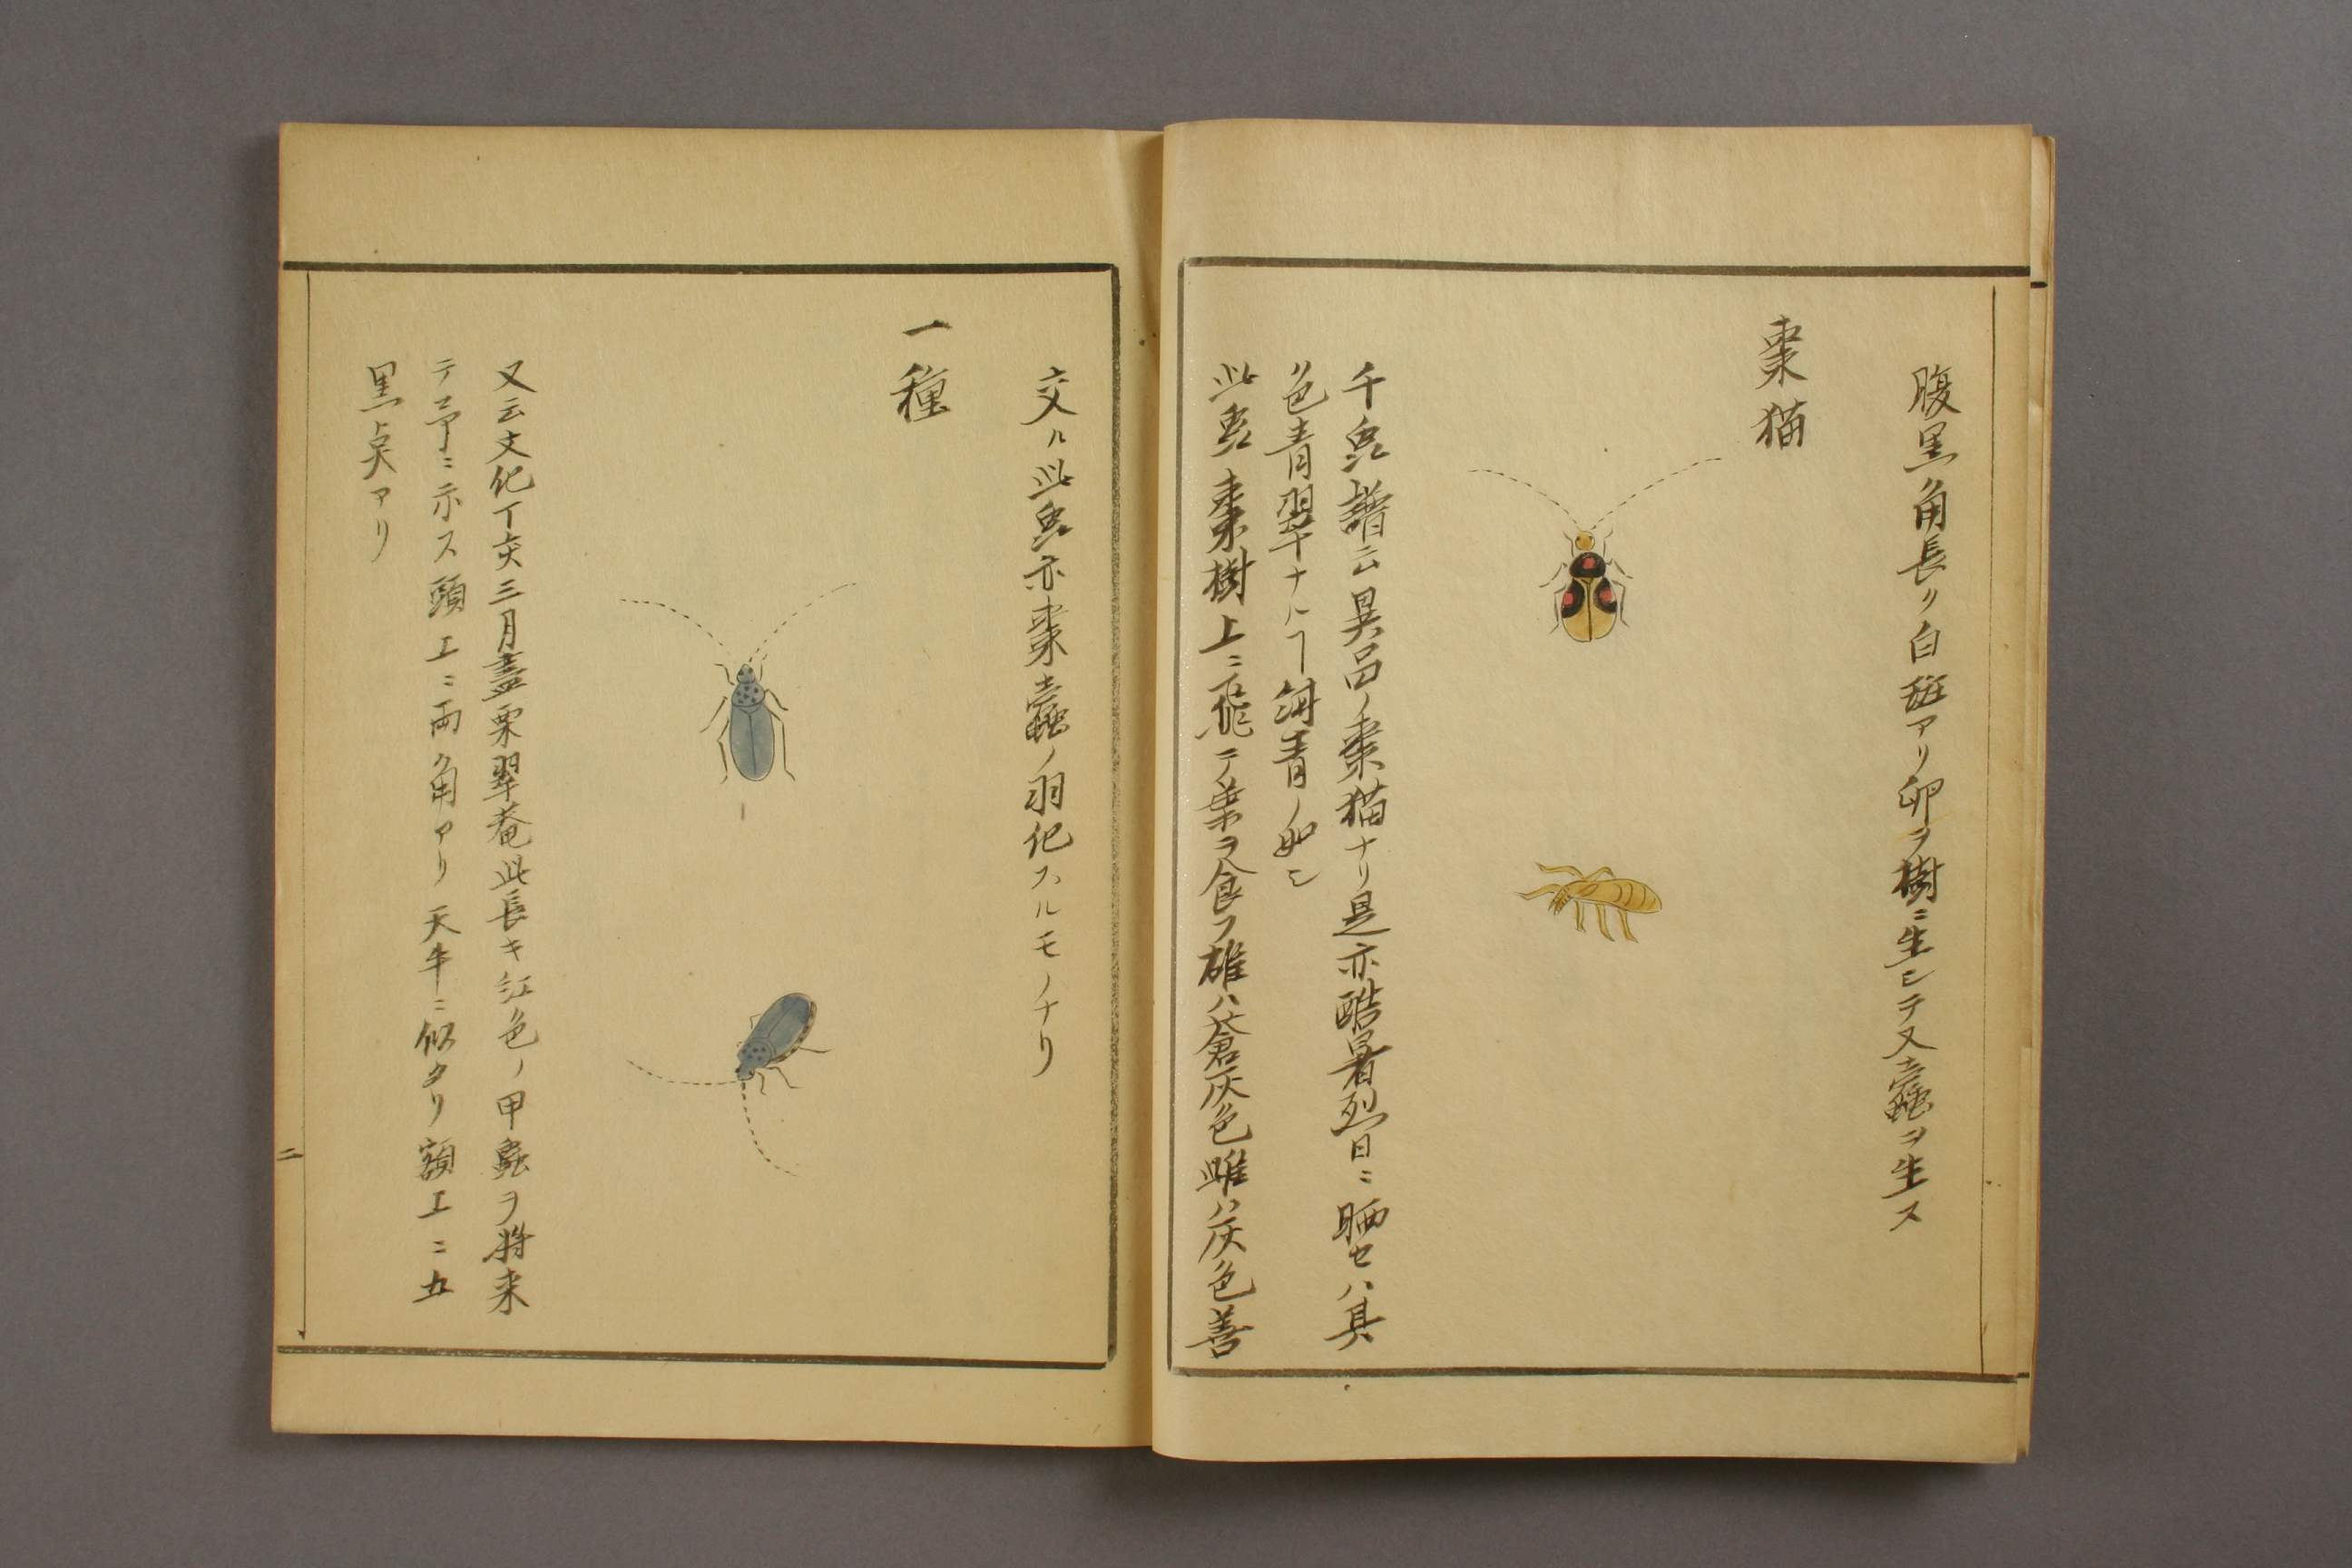 腹黒角長ク白斑アリ卵ヲ樹ニ生シテ又蠹ヲ生ス
棗猫
千虫譜云異品ノ棗猫ナリ是亦酷暑烈日ニ晒セハ其
色青翠ナルヿ紺青ノ如シ
此虫棗樹上ニ飛テ葉ヲ食フ雄ハ蒼灰色雌ハ灰色善
交ル此虫亦棗蠹ノ羽化スルモノナリ
一種
又云文化丁亥三月盡栗翠菴此長キ紅色ノ甲蟲ヲ将来
テ予ニ示ス頭上ニ両角アリ天牛ニ似タリ額上ニ五
黒点アリ
二